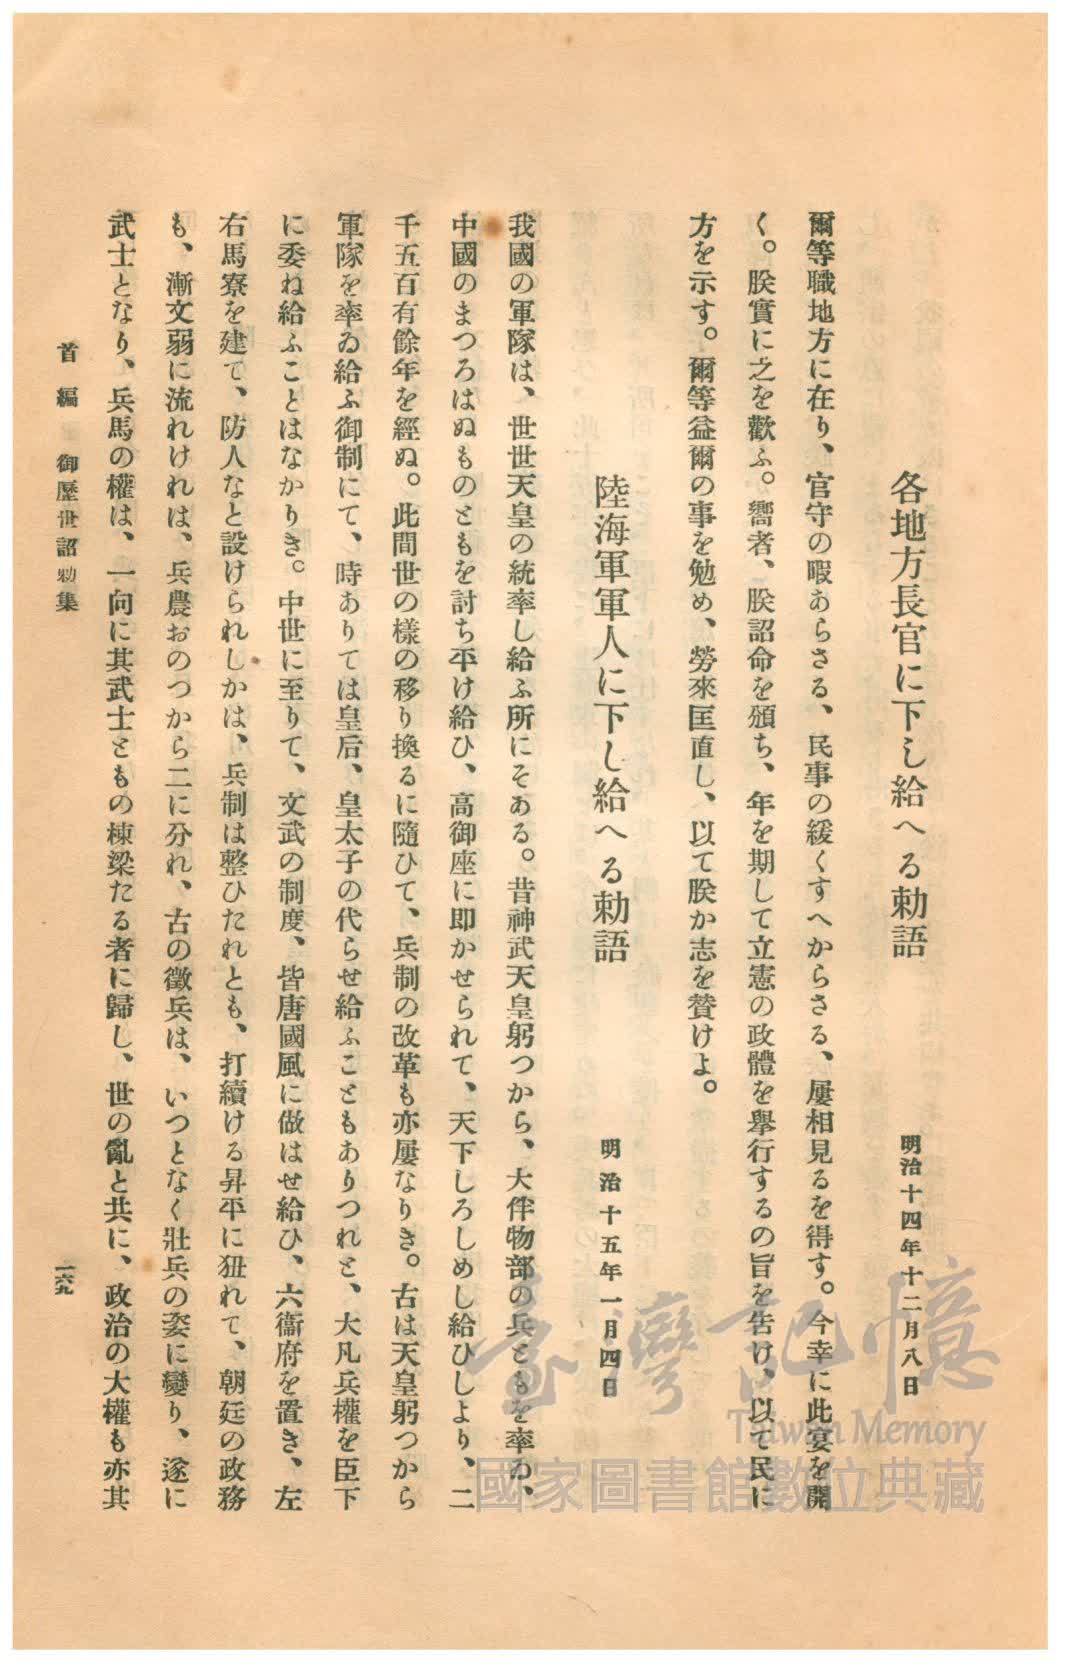 各地方長官に下し給へる勅語
明治十四年十二月八日
爾等職地方に在り、官守の暇あらさる、民事の緩くすへからさる、屢相見るを得す。今幸に此宴を開
く。朕實に之を歡ふ。嚮者、朕詔命を頒ち、年を期して立憲の政體を擧行するの旨を告け、以て民に
方を示す。爾等益爾の事を勉め、勞來匡直し、以て朕か志を賛けよ。
陸海軍軍人に下し給へる勅語
明治十五年一月四日
我國の軍隊は、世世天皇の統率し給ふ所にそある。昔神武天皇躬つから、大伴物部の兵ともを率ゐ、
中國のまつろはぬものともを討ち平け給ひ、高御座に即かせられて、天下しろしめし給ひしより、二
千五百有餘年を經ぬ。此間世の樣の移り換るに隨ひて、兵制の改革も亦屢なりき。古は天皇躬つから
軍隊を率ゐ給ふ御制にて、時ありては皇后、皇太子の代らせ給ふこともありつれと、大凡兵權を臣下
に委ね給ふことはなかりき。中世に至りて、文武の制度、皆唐國風に倣はせ給ひ、六衞府を置き、左
右馬寮を建て、防人なと設けられしかは、兵制は整ひたれとも、打續ける昇平に狃れて、朝廷の政務
も、漸文弱に流れけれは、兵農おのつから二に分れ、古の徵兵は、いつとなく壯兵の姿に變り、遂に
武士となり、兵馬の權は、一向に其武士ともの棟梁たる者に歸し、世の亂と共に、政治の大權も亦其
首編 御歷世詔勅集
一六九
臺灣記憶
Taiwan Memory
國家圖書館數位典藏